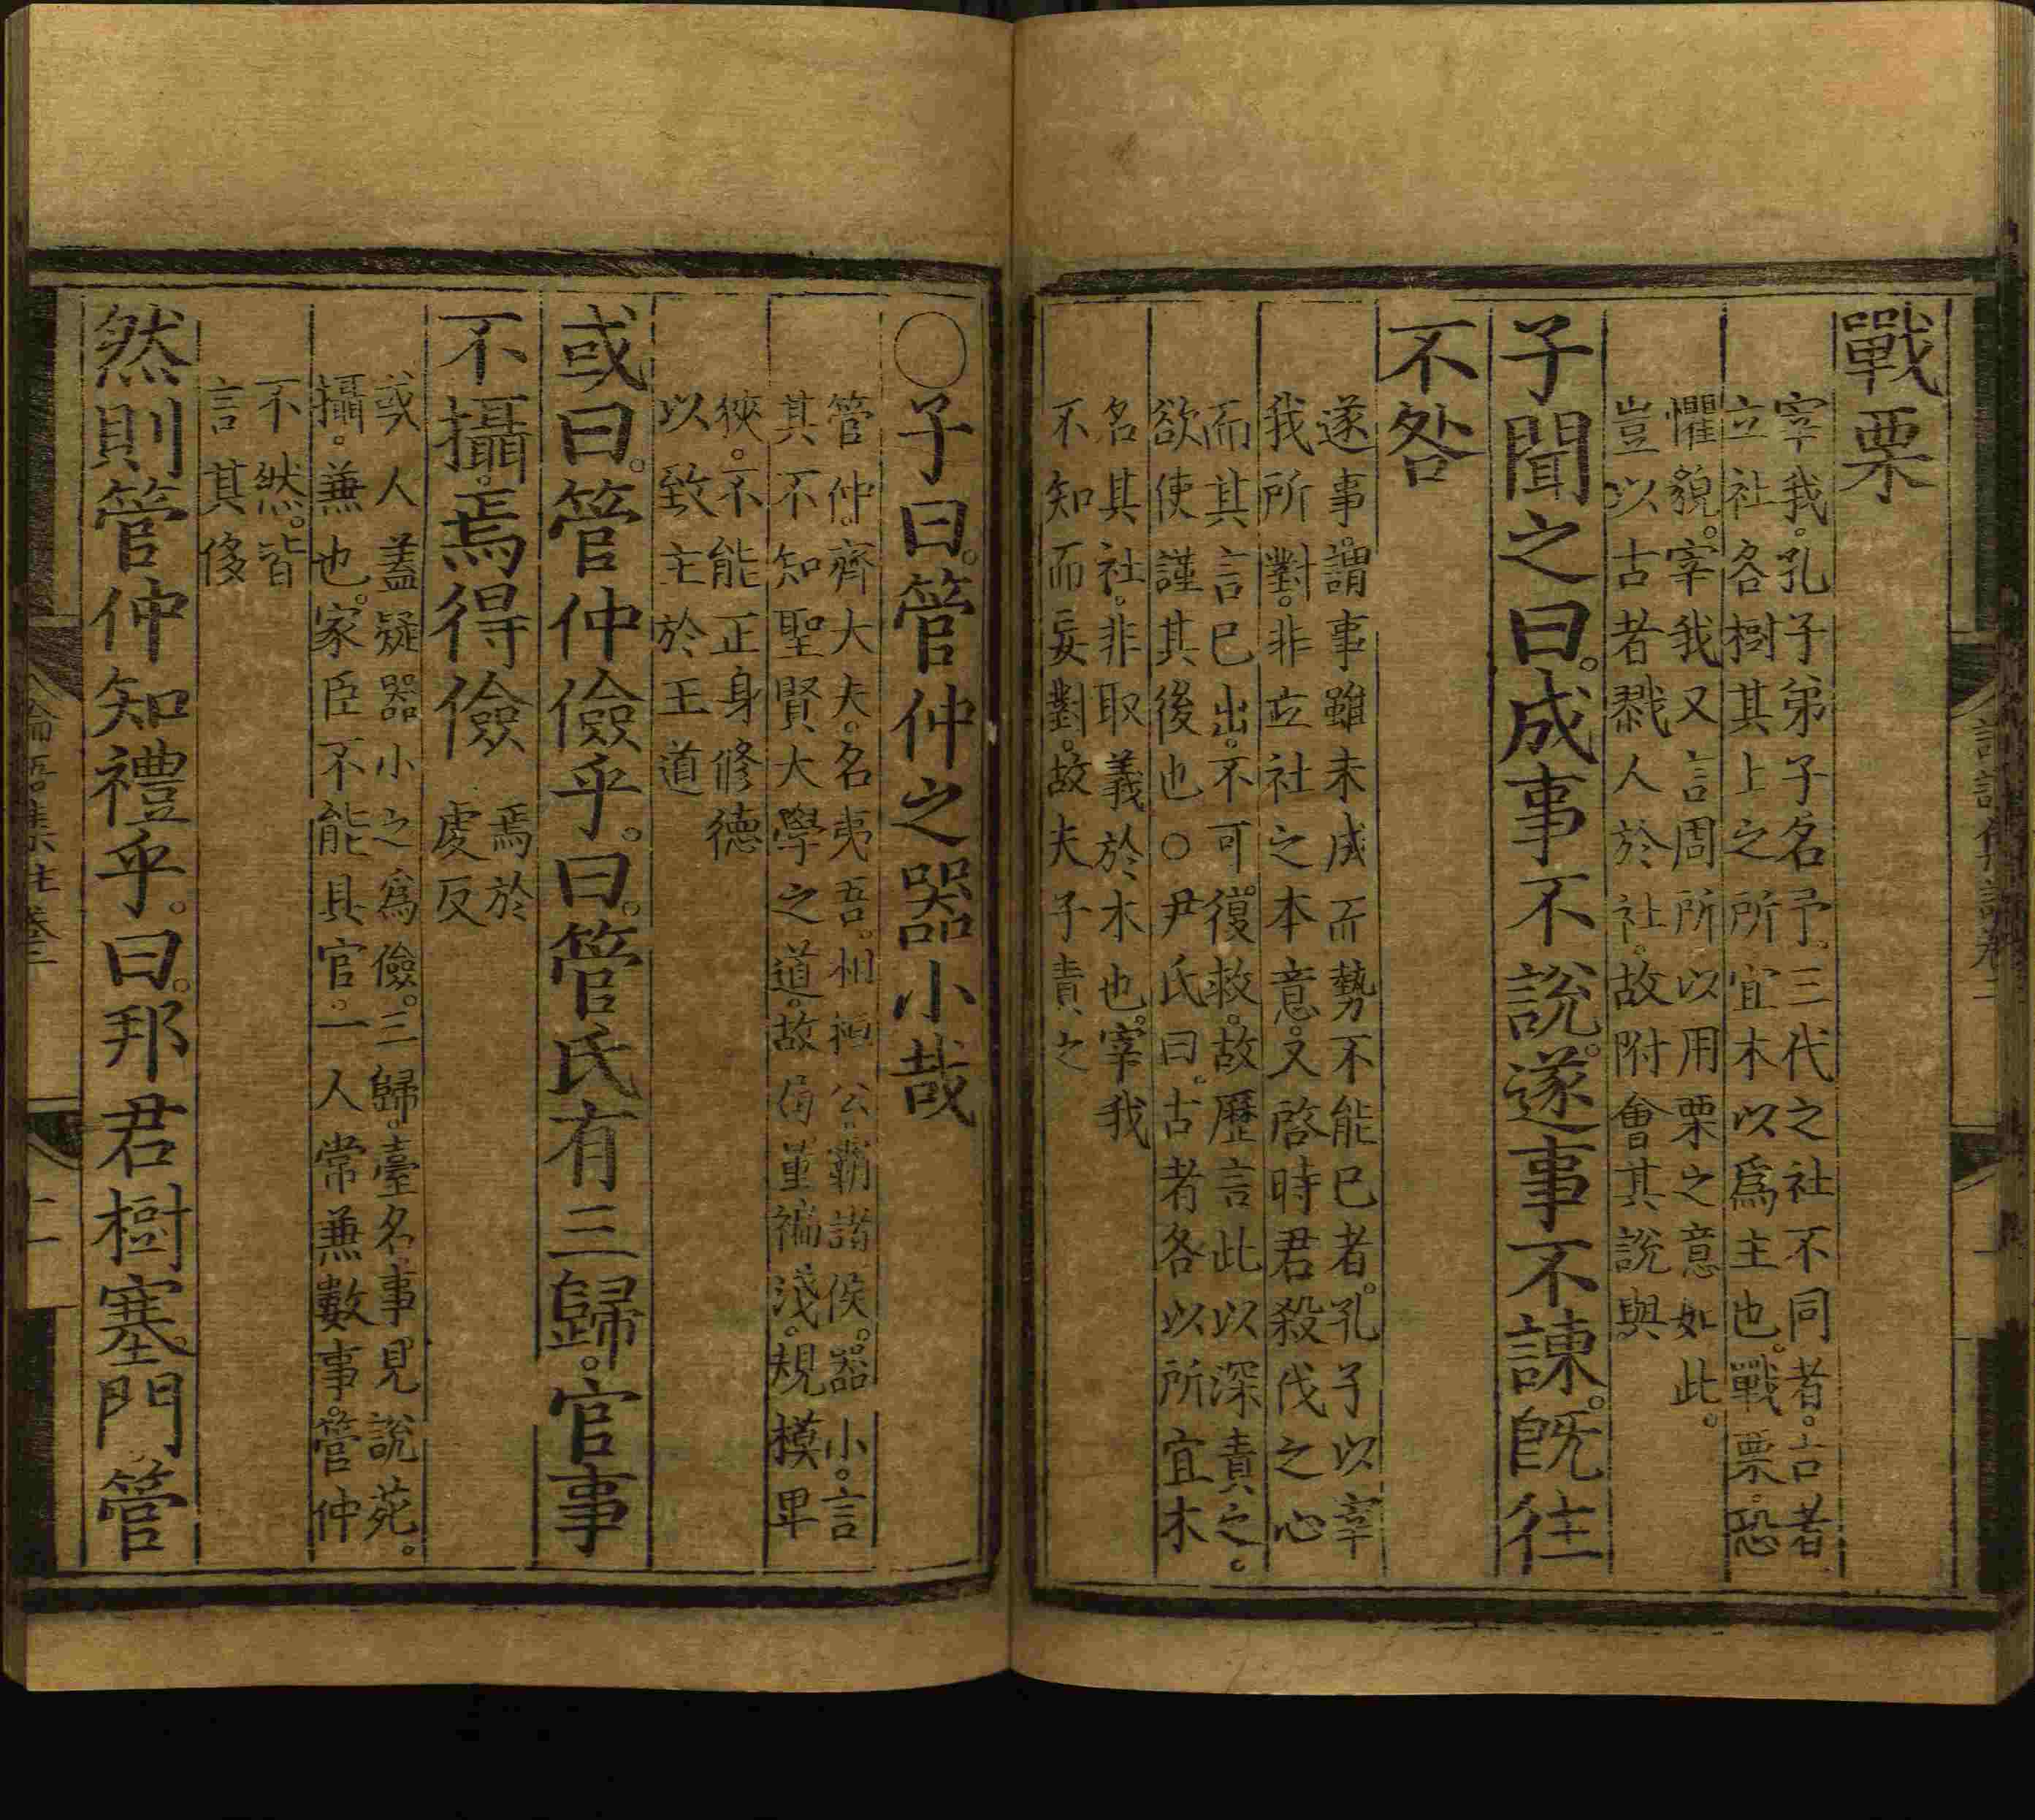 戰栗
宰我。孔子弟子名予。三代之社不同者。古者
立社各樹其上之所宜木以爲主也。戰栗。恐
懼貌。宰我又言周所以用栗之意如此。
豈以古者戮人於社。故附會其說與
子聞之曰。成事不說。遂事不諫。旣往
不咎
遂事。謂事雖未成而勢不能已者。孔子以宰
我所對。非立社之本意。又啓時君殺伐之心
而其言已出。不可復救。故歷言此以深責之。
欲使謹其後也○尹氏曰。古者各以所宜木
名其社。非取義於木也。宰我
不知而妄對。故夫子責之
○子曰。管仲之器小哉
管仲。齊大夫。名夷吾。相桓公霸諸侯。器小。言
其不知聖賢大學之道。故局量褊淺。規模卑
狹。不能正身修德
以致主於王道
或曰。管仲儉乎。曰。管氏有三歸。官事
不攝。焉得儉
焉於
䖏反
或人蓋疑器小之爲儉。三歸。臺名。事見說苑。
攝。兼也。家臣不能具官。一人常兼數事。管仲
不然。皆
言其侈
然則管仲知禮乎。曰。邦君樹塞門。管
論語集註卷二